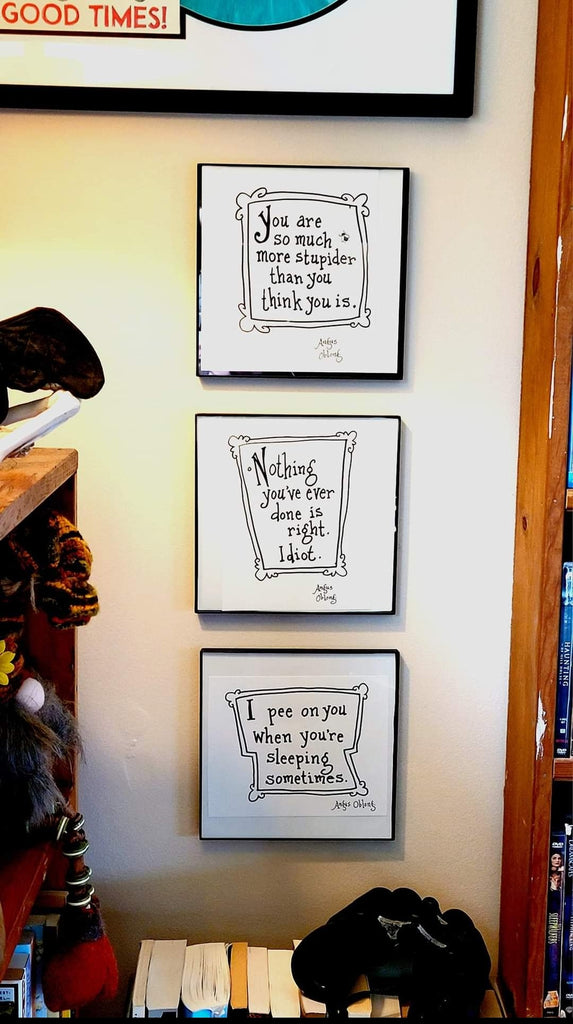 GOOD TIMES!
You are
so much
more stupider
than you
think you is.
Angus
Oblong
Nothing
you've ever
done is
right.
Idiot.
Angus
Oblong
I pee on you
when you're
sleeping
sometimes.
Angus Oblong
HAUNTING
SLEEPWALKERS